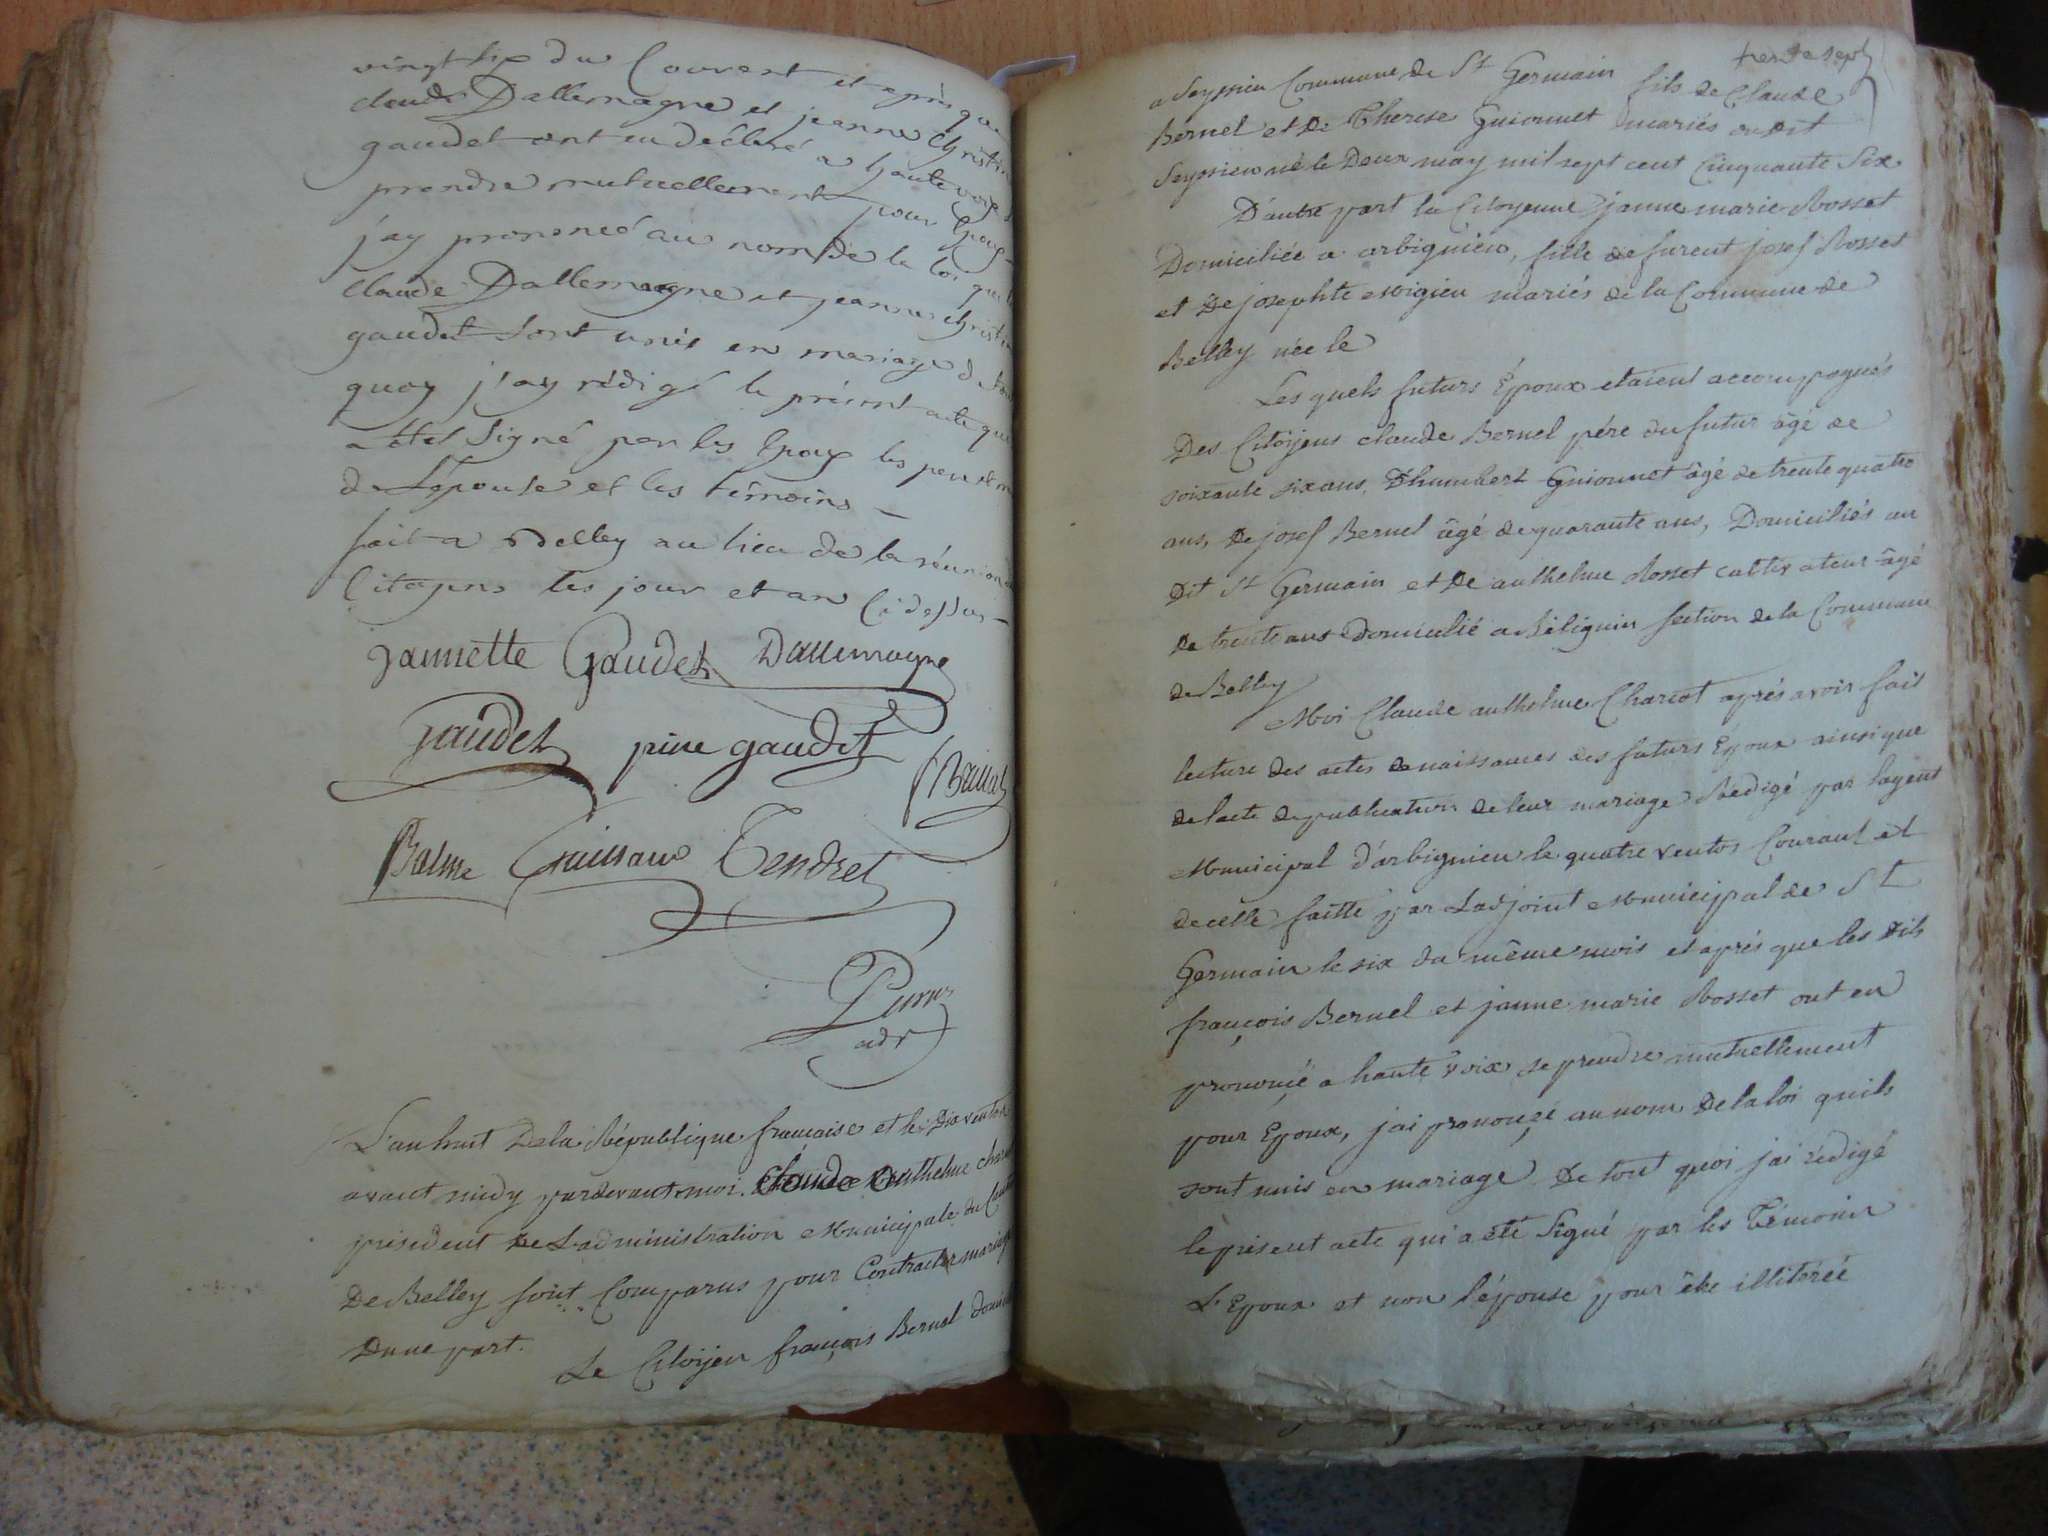 vingt six du Courent et après que
claude Dallemagne et jeanne Christin
gaudet ont eu déclaré a haute voix
prendre mutuellement pour Epoux
j'ay prononcé au nom de la loi que
claude Dallemagne et jeanne christi
gaudet sont unis en mariage de tout
quoy j'ay rédigé le présent acte qui
a été signé par les Epoux les
de Lepouse et les témoins —
fait a Belley au lieu de la réunion
Citoyens les jour et an Ci dessus —
jannette Gaudet Dallemagne
gaudet pine gaudet
Balme Tendret
adr
L'an huit De la République francaise et le Dix ventos
avant midy pardevant moi Claude Anthelme chariot
président De L'administration Municipale du Cant
De Belley sont Comparus pour Contracter mariage
Dune part.
Le Citoijen françois Bernel domici
trente sept
a Seyssieu Commune de St Germain fils de Claude
Bernel et de Therese Guionnet mariés audit
Seyssieu né le Deux may mil sept cent Cinquante Six
D'autre part la Citoyenne janne marie Rosset
Domiciliée a arbignieu, fille de furent josef Rosset
et De josephte Migieu mariés de la Commune de
Belley née le
Les quels futurs Époux etaient accompagnés
Des Citoÿens claude Bernel pére du futur âgé de
soixante six ans, D'humbert Guionnet âgé de trente quatre
ans, De josef Bernel âgé de quarante ans, Domiciliés au
Dit St Germain et De anthelme Rosset cultivateur âgé
de trente ans Domicilié a Béliguin section de la Commune
de Belley
Moi Claude anthelme Chariot aprés avoir fait
lecture des actes de naissances des futurs Epoux ainsi que
de lacte de publication de leur mariage Redigé par lagent
Municipal d'arbignieu le quatre ventos Courant et
de celle faitte par Ladjoint Municipal de St
Germain le six du même mois et aprés que les Dits
françois Bernel et janne marie Rosset ont eu
prononçé a haute voix se prendre mutuellement
pour Epoux, j'ai prononçé au nom De la loi quils
sont unis en mariage De tout quoi j'ai rédigé
le présent acte qui a été Signé par les Témoins
L'Epoux et non l'épouse pour être illitérée